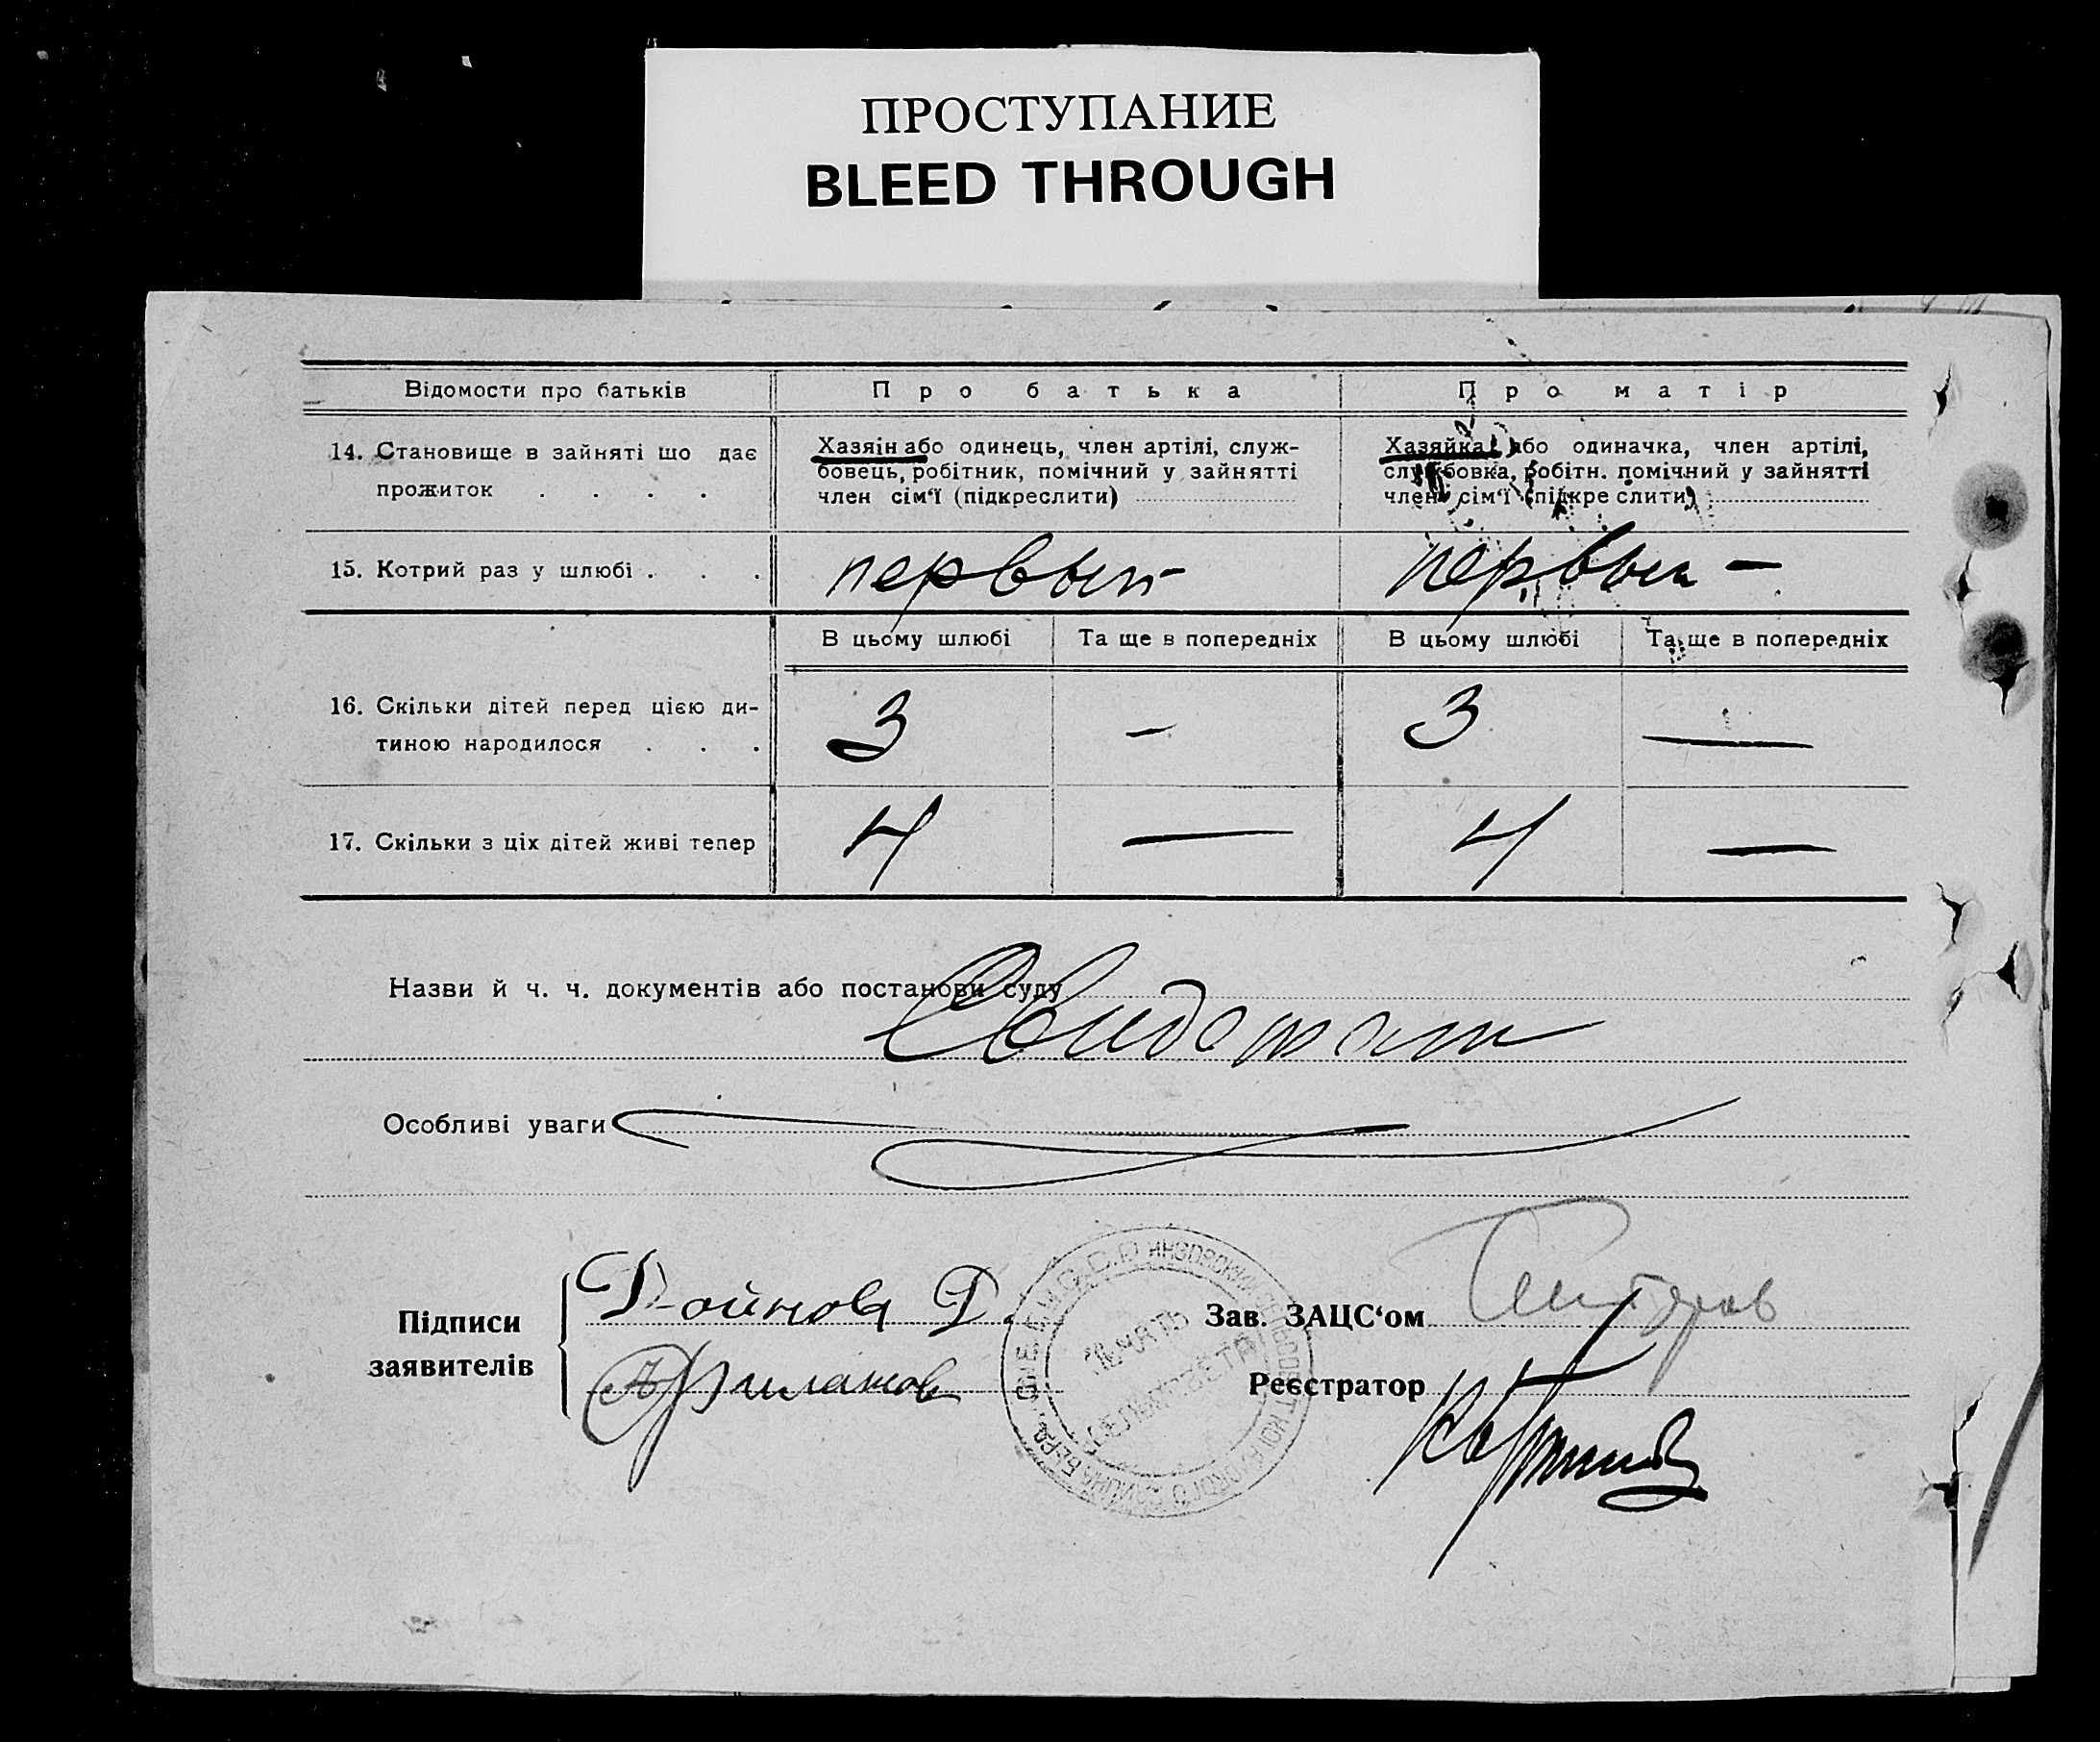 ПРОСТУПАНИЕ
BLEED THROUGH
Відомости про батьків
Про батька
Про матір
14. Становище в зайняті що дає
прожиток . . . .
Хазяін або одинець, член артілі, служ-
бовець, робітник, помічний у зайнятті
член сім'ї (підкреслити)
Хазяйка або одиначка, член артілі,
службовка, робітн. помічний у зайнятті
член сім'ї (підкреслити)
15. Котрий раз у шлюбі . . .
первый
первый –
В цьому шлюбі
Та ще в попередніх
В цьому шлюбі
Та ще в попередніх
16. Скільки дітей перед цією ди-
тиною народилося . . .
3
–
3
—
17. Скільки з ціх дітей живі тепер
4
—
4
—
Назви й ч. ч. документів або постанови суду
Особливі уваги
Підписи
заявителів
Дойнова Д.
Зав. ЗАЦС'ом
Реєстратор